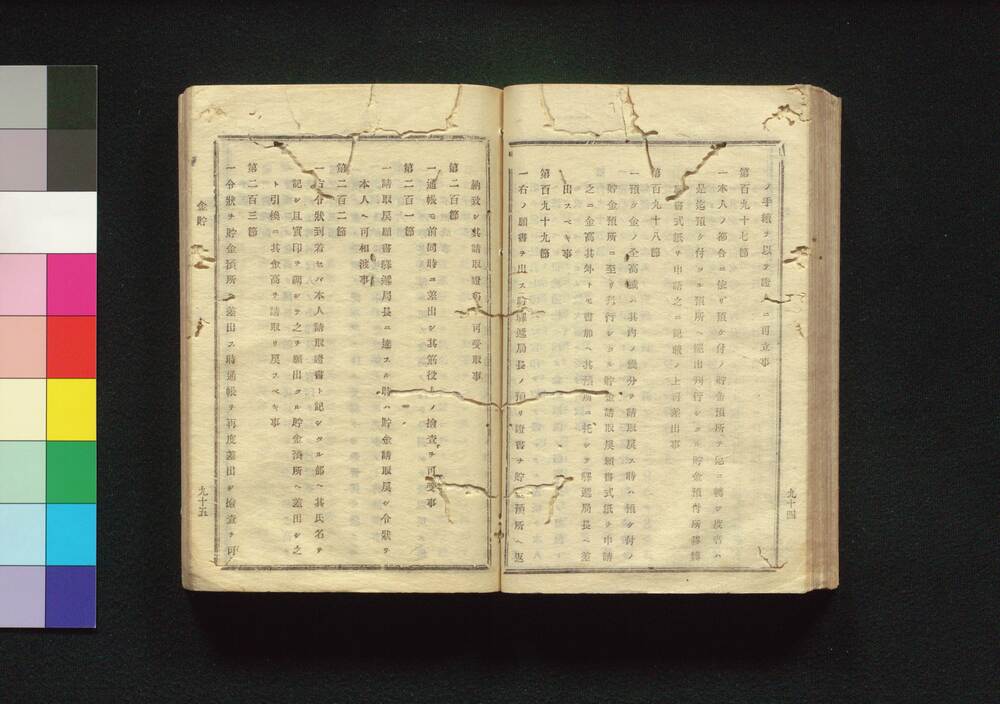 ノ手續ヲ以テ證トニ可立事
第百九十七節
一本人ノ都合ニ依リ預ケ付ノ貯金預所ヲ他ニ轉シ度者ハ
是迄預ケ付タル預所ヘ罷出刋行シタル貯金預替所移轉
書式紙ヲ申請之ニ記載ノ上可差出事
第百九十八節
一預ケ金ノ全高或ハ其內ノ幾分ヲ請取戻ス時ハ預ケ付ノ
貯金預所ニ至リ刋行シタル貯金請取戻願書式紙ヲ申請
之ニ金高其外トモ書加ヘ其預所ニ托シテ驛遞局長ヘ差
出スベキ事
第百九十九節
一右ノ願書ヲ出ス時驛遞局長ノ預リ證書ヲ貯金預所ヘ返
九十四
納致シ其請取證書可受取事
第二百節
一通帳モ前同時ニ差出シ其筋役人ノ撿查ヲ可受事
第二百一節
一請取戻願書驛遞局長ニ達スル時ハ貯金請取戻シ令狀ヲ
本人ヘ可相渡事
第二百二節
一右令狀到着セバ本人請取證書ト記シタル部ヘ其氏名ヲ
記シ且實印ヲ調シテ之ヲ願出タル貯金預所ヘ差出シ之
ト引換ニ其金高ヲ請取リ戻スベキ事
第二百三節
一令狀ヲ貯金預所ヘ差出ス時通帳ヲ再度差出シ撿查ヲ可
金貯
九十五